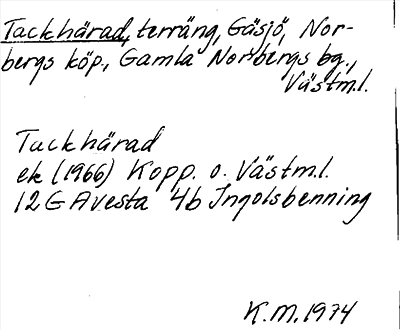 Tackhärad, terräng, Gäsjö, Nor-
bergs köp., Gamla Norbergs bg.,
Västml.
Tackhärad
ek (1966) Kopp. o. Västml.
12G Avesta 4b Ingolsbenning
K.M. 1974